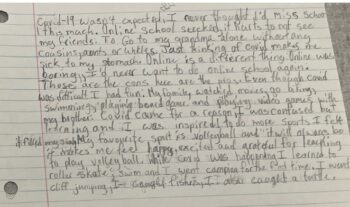 Covid-19 wasn't expected, I never thought I'd miss school
this much. Online School sucked, it hurts to not see
my friends. To Go to my grandma alone without any
cousins, aunts or uncles. Just thinking of covid makes me
sick to my stomach. Online is a different thing. Online was
boring, I'd never want to do online school again.
Those are the cons here are the Even though covid
was difficult I had fun. My family watched movies, go biking,
swimming, playing board game and playing video games with
my brother. Covid came for a reason it was confused but
learning and I was inspired to do more Sports I felt
My favourite sport is volleyball and it will always be
it makes me feel happy, excited and grateful for learning
to play volleyball. while covid was happening I learned to
roller skate, swim and I went camping for the first time, I went
cliff jumping, I caught fishes, I also caught a turtle.